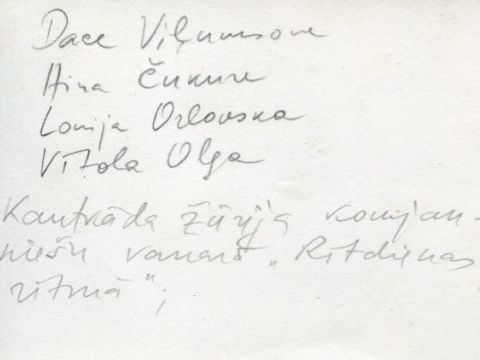 Dace Viļumsone
Aina Čukure
Lonija Orlovska
Vītola Olga
Kautkāda žūrija komjau-
niešu vakarā „Rītdienas
ritmā";